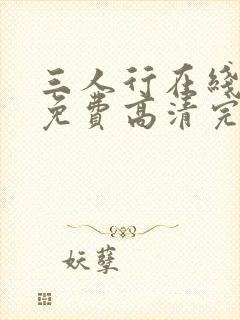 三人行在线
免费高清完
妖孽